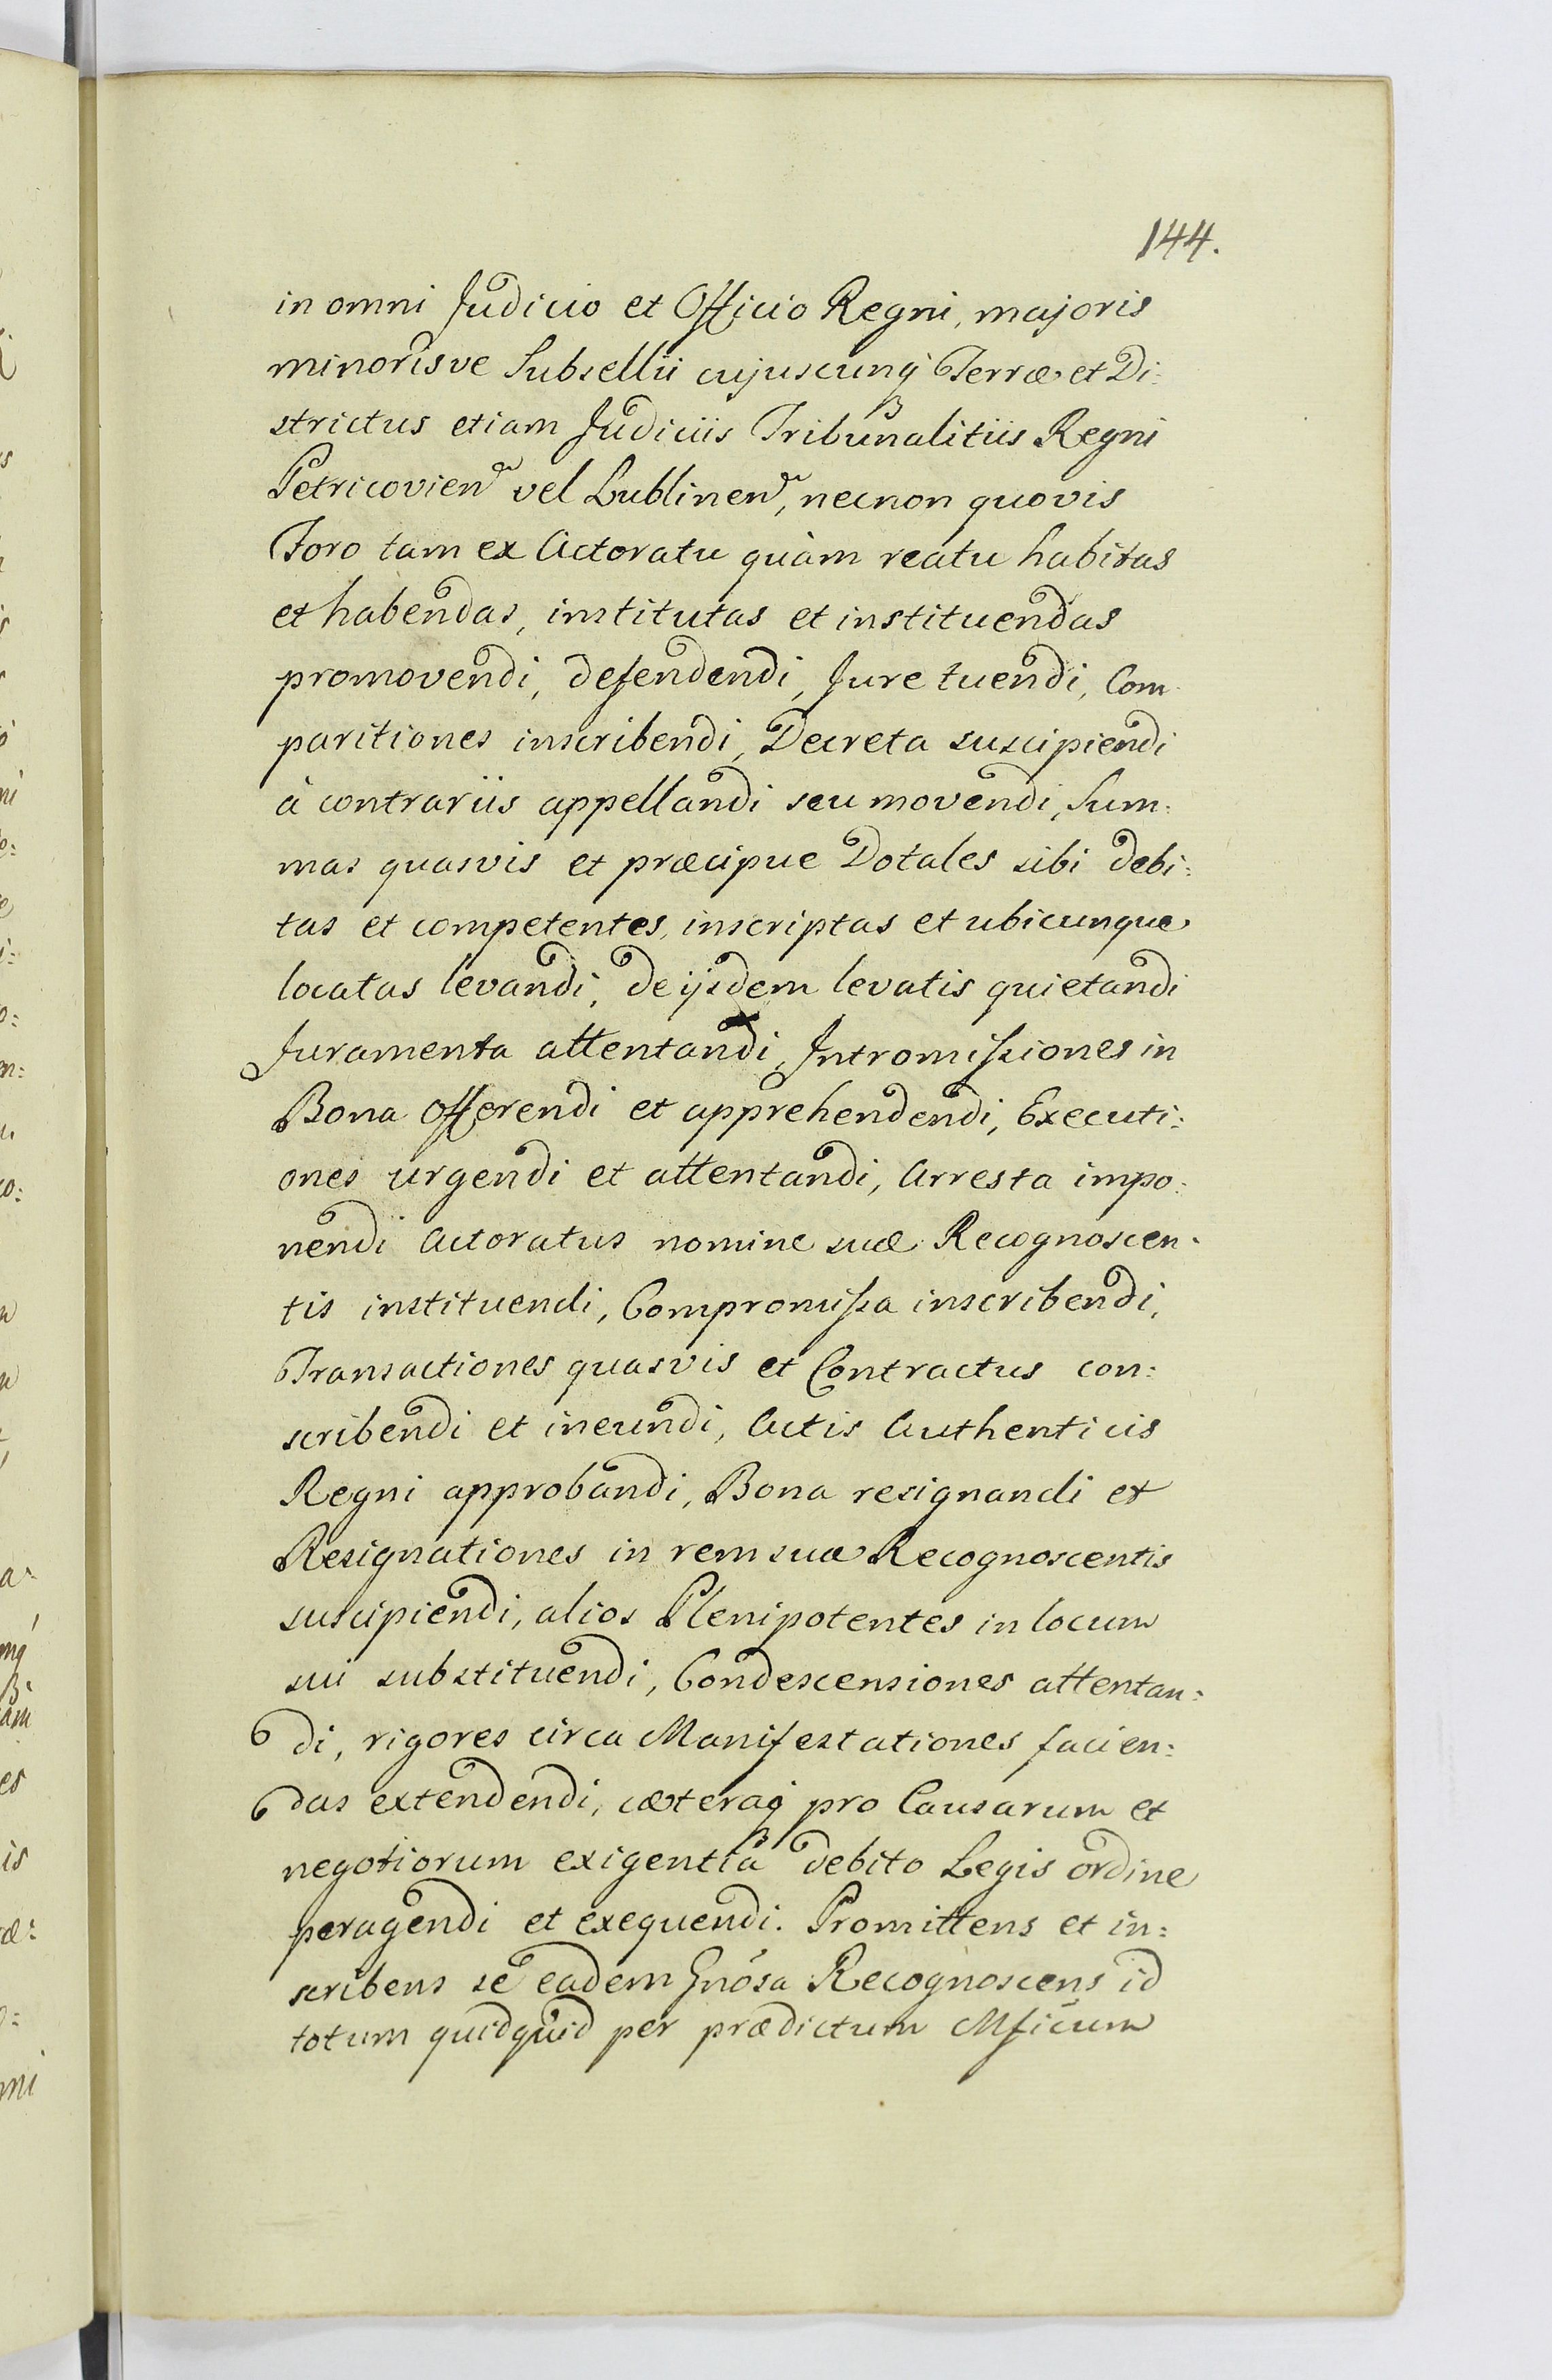 144.
in omni Judicio et Officio Regni, majoris
minorisve Subsellii cujuscunq3 Terræ et Di:
strictus etiam Judiciis Tribunalitiis Regni
Petricovien vel Lublinen, necnon quovis
Foro tam ex Actoratu quàm reatu habitas
et habendas, institutas et instituendas
promovendi, defendendi, Jure tuendi, Com
paritiones inscribendi, Decreta suscipiendi
à contrariis appellandi seu movendi, Sum:
mas quasvis et præcipue Dotales sibi debi:
tas et competentes, inscriptas et ubicunque
locatas levandi, de ijsdem levatis quietandi
Juramenta attentandi, Intromissiones in
Bona offerendi et apprehendendi, Executi:
ones urgendi et attentandi, Arresta impo:
nendi Actoratus nomine suæ Recognoscen:
tis instituendi, Compromissa inscribendi,
Transactiones quasvis et Contractus con:
scribendi et ineundi, Actis Authenticis
Regni approbandi, Bona resignandi et
Resignationes in rem suæ Recognoscentis
suscipiendi, alios Plenipotentes in locum
sui substituendi, Condescensiones attentan:
di, rigores circa Manifestationes facien:
das extendendi, cæteraq3 pro Causarum et
negotiorum exigentia debito Legis ordine
peragendi et exequendi. Promittens et in:
scribens se eadem Gnosa Recognoscens id
totum quidquid per prædictum Mficum